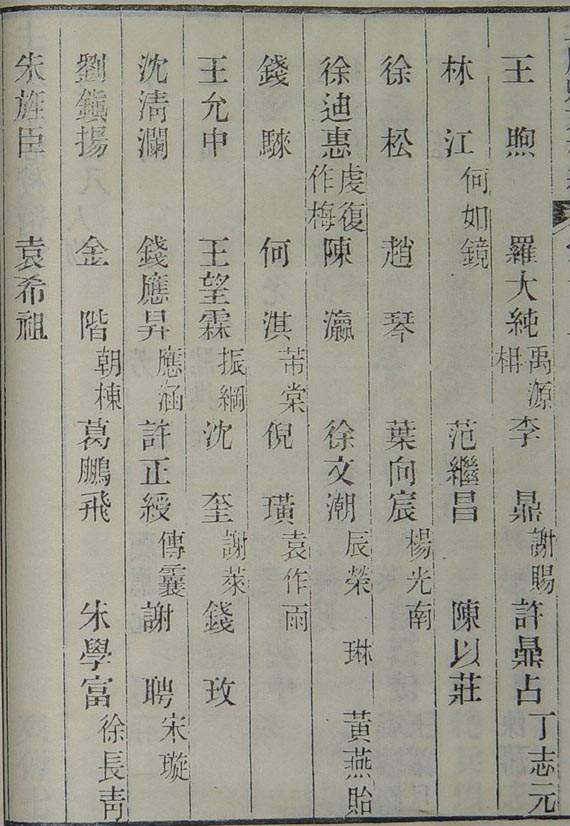 王煦 羅大純 禹源 相 李鼎 謝賜 許鼎占 丁志元
林江 何如鏡 范繼昌 陳以莊
徐松 趙琴 葉向宸 楊光南
徐迪惠 虔復 作梅 陳瀛 徐文潮 辰榮 琳 黃燕貽
錢騋 何淇 芾棠 倪璜 袁作雨
王允中 王望霖 振綱 沈奎 謝萊 錢玫
沈清瀾 錢應昇 應涵 許正綬 傳霙 謝聘 宋璇
劉鎮揚 金階 朝棟 葛鵬飛 朱學富 徐長青
朱旌臣 袁希祖